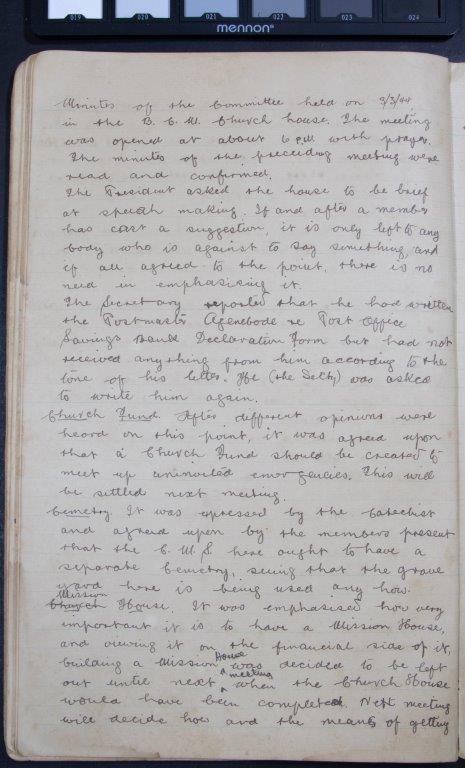 019 020 021 022 023 024
mennon
Minutes of the Committee held on 3/3/44
in the B.C.M. Church house. The meeting
was opened at about 6 p.m with prayer.
The minutes of the preceeding meeting were
read and confirmed.
The President asked the house to be brief
at speech making. If and after a member
has cast a suggestion, it is only left to any
body who is against to say something, and
if all agreed to the point, there is no
need in emphasising it.
The Secretary reported that he had written
the Postmaster Agenebode re Post Office
Savings Bank Declaration Form but had not
received anything from him according to the
tone of his letter. He (the Secty) was asked
to write him again.
Church Fund. After different opinions were
heard on this point, it was agreed upon
that a Church Fund should be created to
meet up uninvited emergencies. This will
be settled next meeting.
Cemetry. It was expressed by the Catechist
and agreed upon by the members present
that the C.M.S here ought to have a
separate Cemetry, seeing that the grave
yard here is being used any how.
Mission
Church House. It was emphasised how very
important it is to have a Mission House,
and viewing it on the financial side of it,
building a Mission House was decided to be left
out until next meeting when the Church House
would have been completed. Next meeting
will decide how and the means of getting